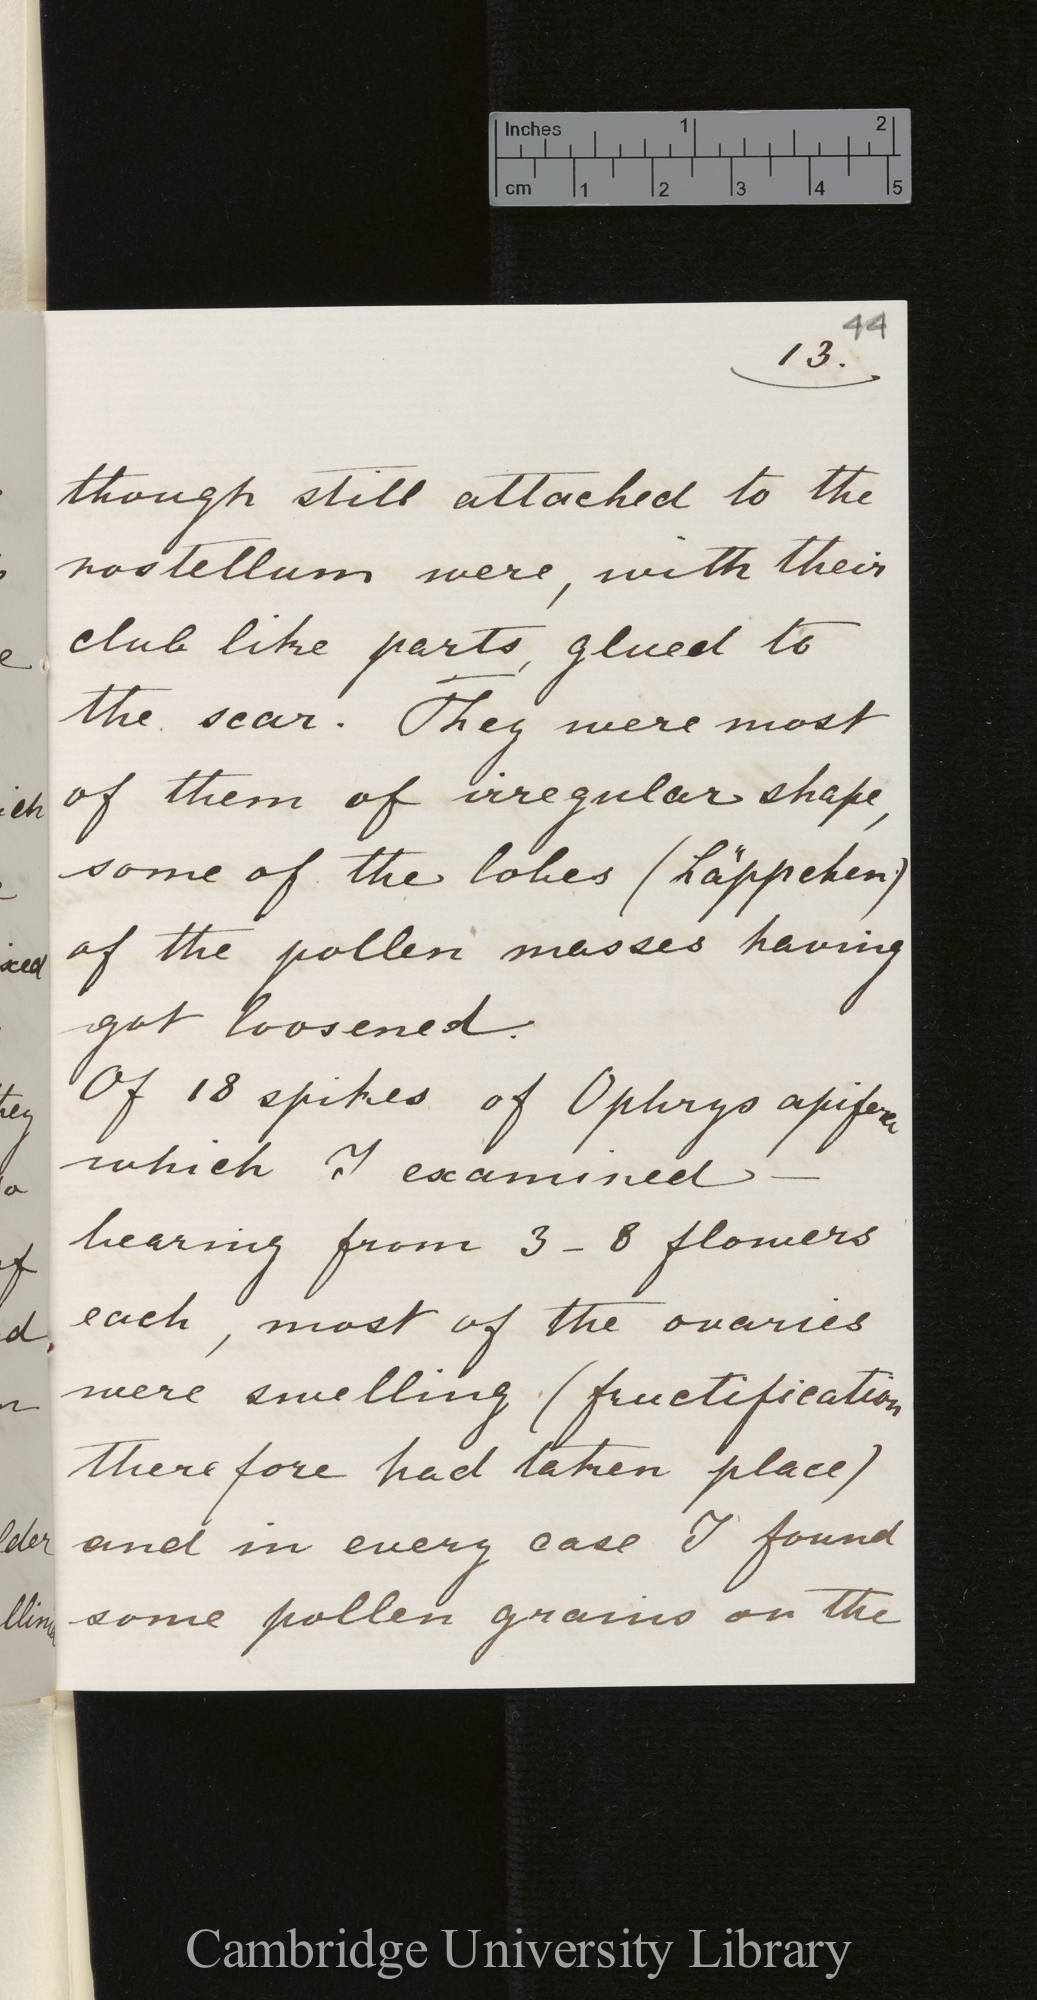 Inches 1 2
cm 1 2 3 4 5
44
13.
though still attached to the
rostellum were, with their
club like parts, glued to
the scar. They were most
of them of irregular shape,
some of the lobes (Läppchen)
of the pollen masses having
got loosened.
Of 18 spikes of Ophrys apifera
which I examined —
bearing from 3 – 8 flowers
each, most of the ovaries
were swelling (fructification
therefore had taken place)
and in every case I found
some pollen grains on the
Cambridge University Library